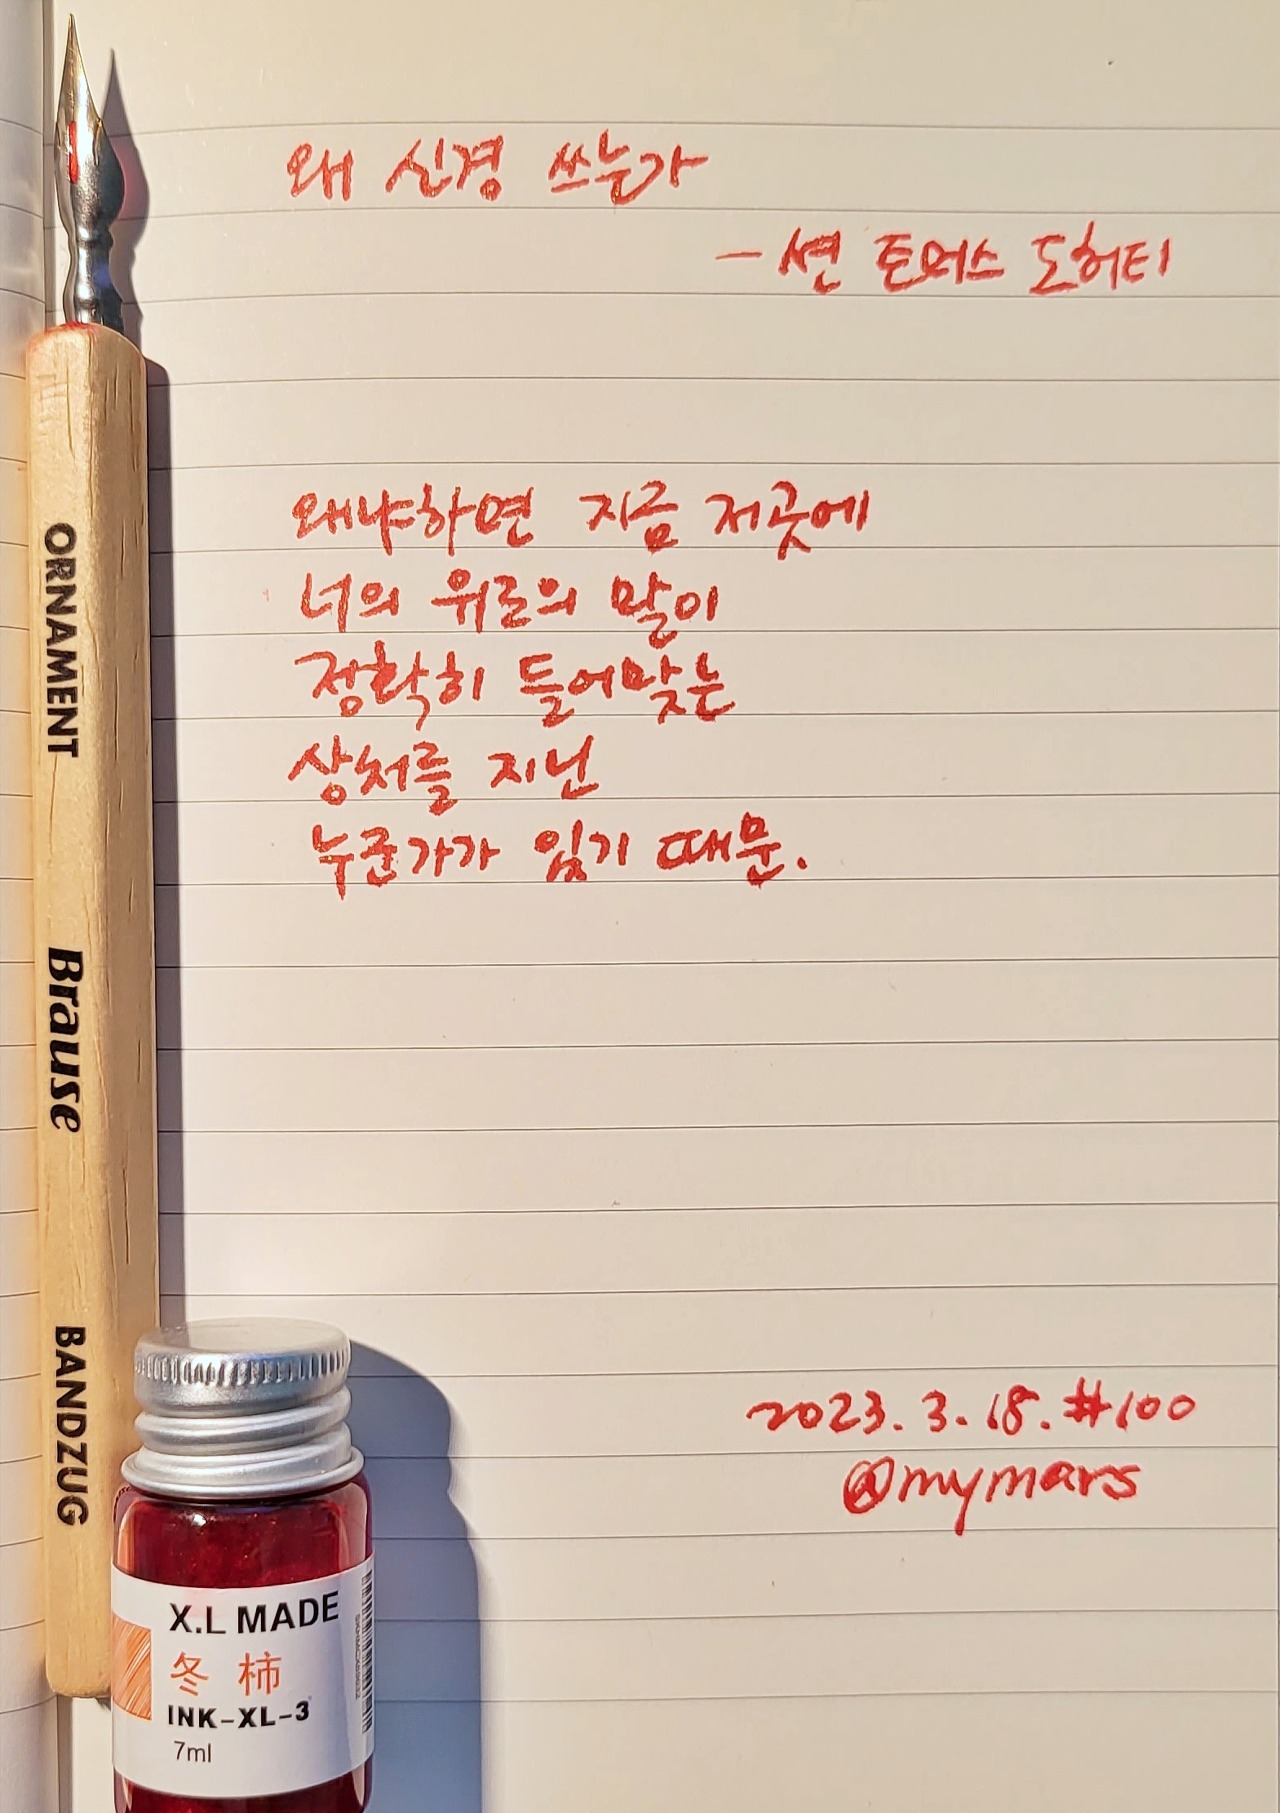 왜 신경 쓰는가
- 션 토머스 도허티
왜냐하면 지금 저곳에
너의 위로의 말이
정확히 들어맞는
상처를 지닌
누군가가 있기 때문.
2023.3.18.#100
@mymars
ORNAMENT Brause BANDZUG
X.L MADE
冬 柿
INK-XL-3
7ml